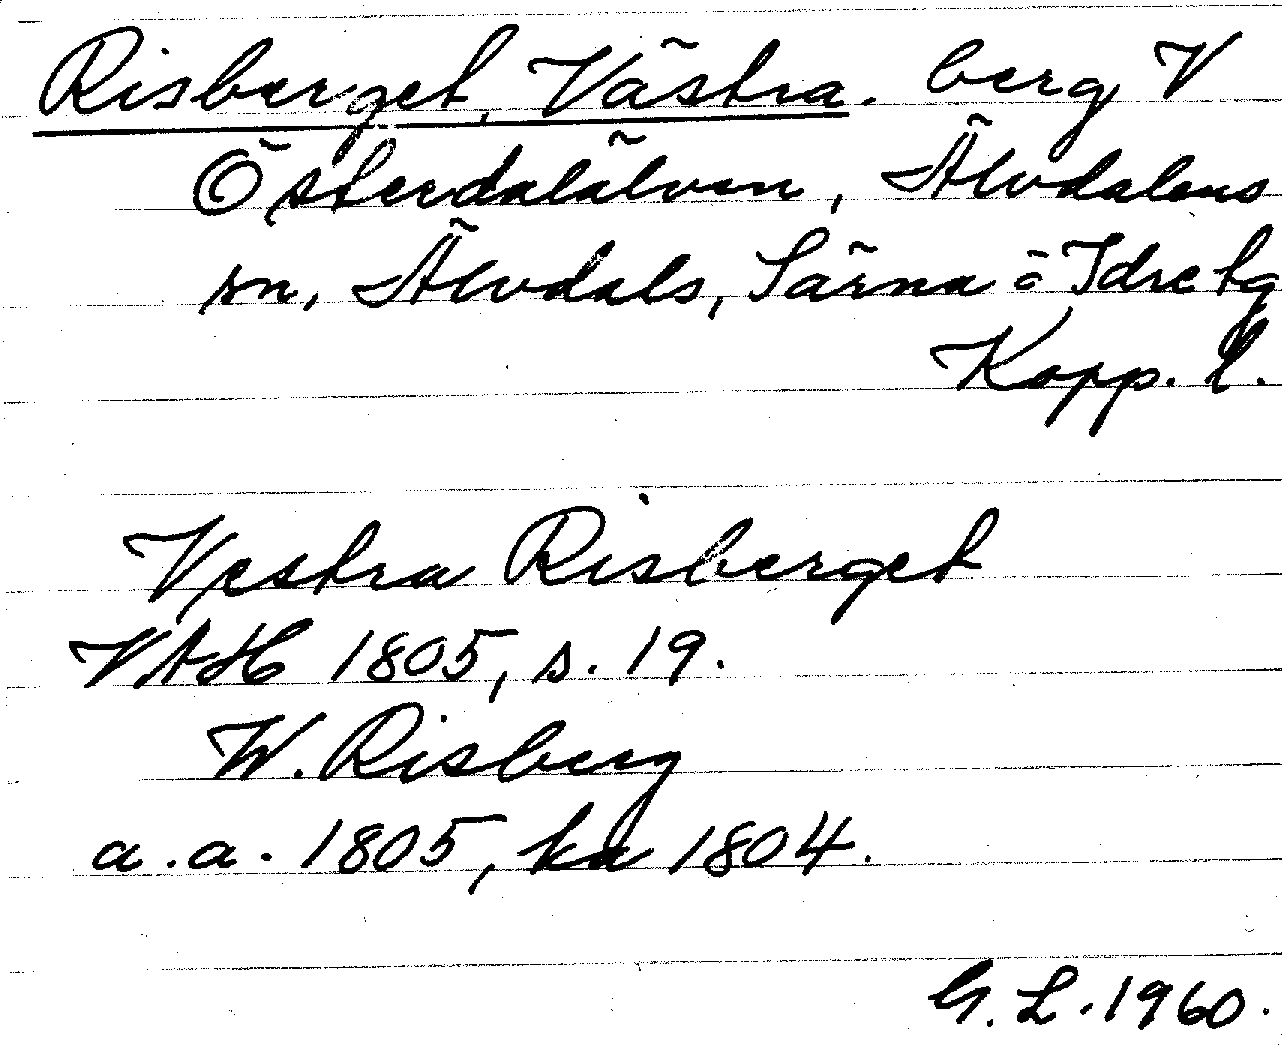 Risberget, Västra. berg V
Österdalälven, Älvdalens
sn, Älvdals, Särna o Idre tg
Kopp. l.
Vestra Risberget
VAH 1805, s. 19.
W. Risberg
a.a. 1805, ka 1804.
G. L. 1960.